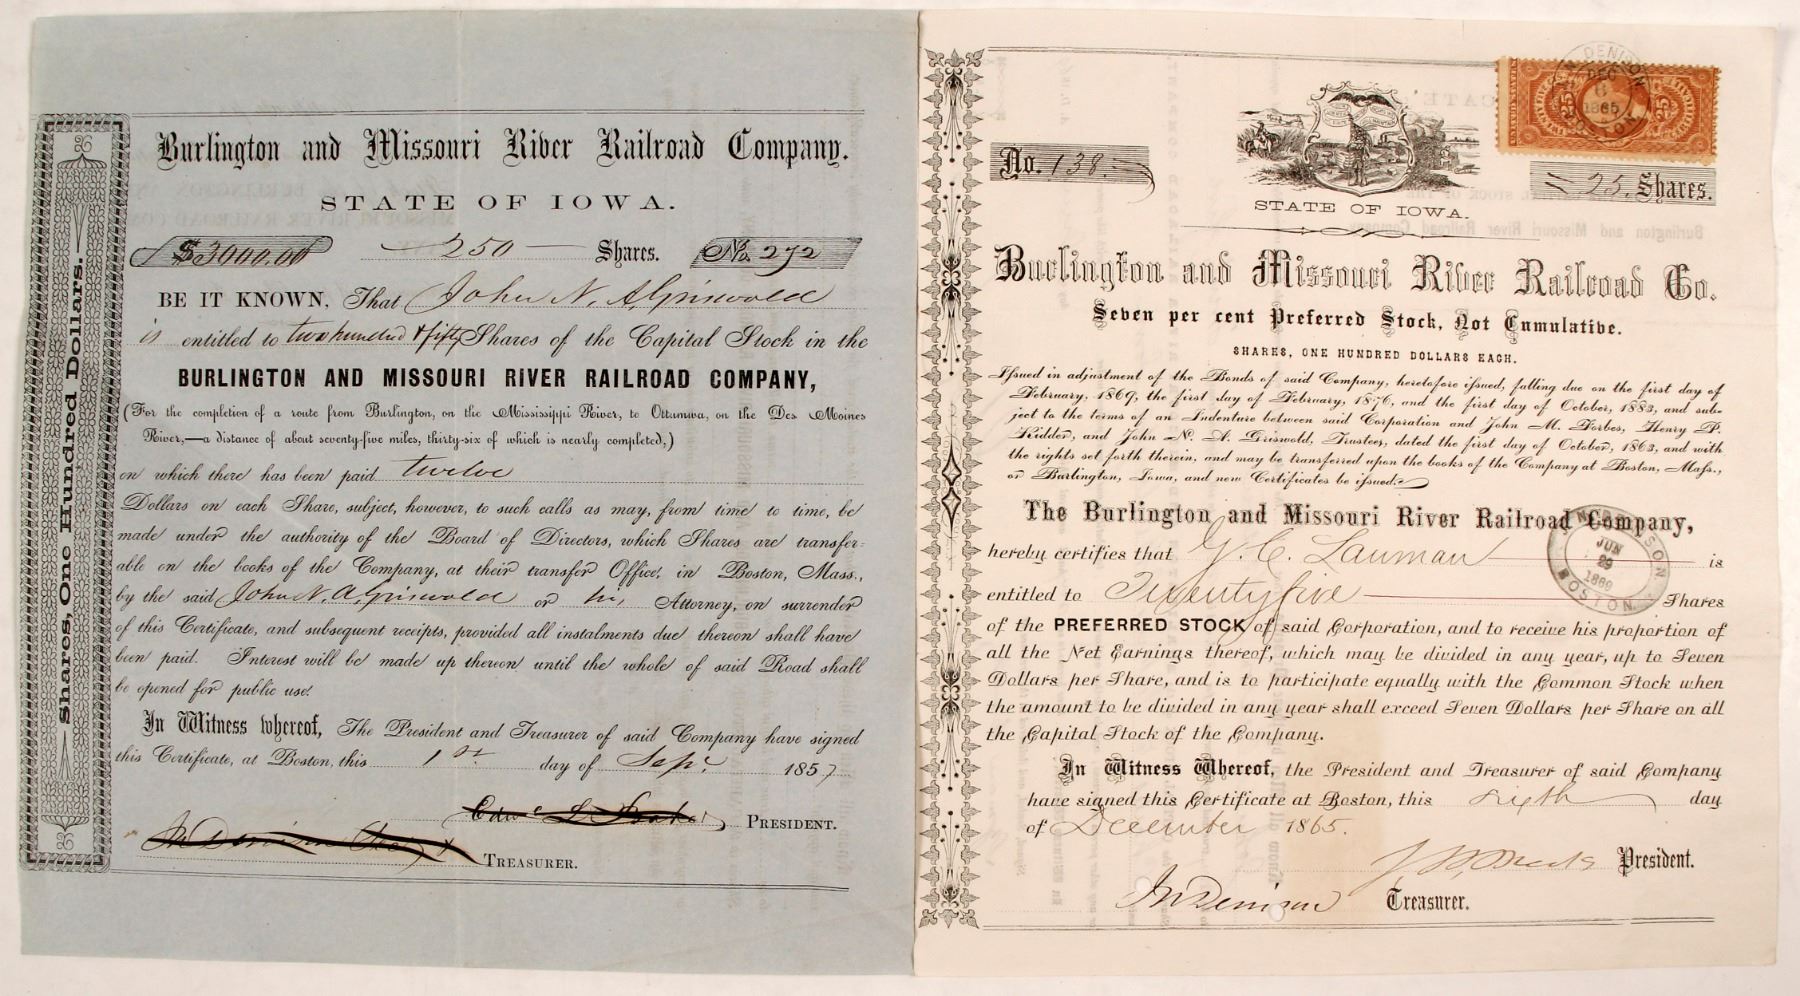 Shares, One Hundred Dollars.
Burlington and Missouri River Railroad Company.
STATE OF IOWA.
$3000.00 250 Shares. No. 272
BE IT KNOWN, That John N. A. Griswold
is entitled to two hundred & fifty Shares of the Capital Stock in the
BURLINGTON AND MISSOURI RIVER RAILROAD COMPANY,
(For the completion of a route from Burlington, on the Mississippi River, to Ottumwa, on the Des Moines
River,—a distance of about seventy-five miles, thirty-six of which is nearly completed,)
on which there has been paid twelve
Dollars on each Share, subject, however, to such calls as may, from time to time, be
made under the authority of the Board of Directors, which Shares are transfer-
able on the books of the Company, at their transfer Office, in Boston, Mass.,
by the said John N. A. Griswold or his Attorney, on surrender
of this Certificate, and subsequent receipts, provided all instalments due thereon shall have
been paid. Interest will be made up thereon until the whole of said Road shall
be opened for public use.
In Witness whereof, The President and Treasurer of said Company have signed
this Certificate, at Boston, this 1st day of Sept. 1857
PRESIDENT.
TREASURER.
No. 138.
25. Shares.
DENISON
DEC
6
1865
BOSTON
25 25
STATE OF IOWA.
Burlington and Missouri River Railroad Co.
Seven per cent Preferred Stock, Not Cumulative.
SHARES, ONE HUNDRED DOLLARS EACH.
Issued in adjustment of the Bonds of said Company, heretofore issued, falling due on the first day of
February, 1869, the first day of February, 1876, and the first day of October, 1883, and sub-
ject to the terms of an Indenture between said Corporation and John M. Forbes, Henry P.
Kidder, and John N. A. Griswold, Trustees, dated the first day of October, 1863, and with
the rights set forth therein, and may be transferred upon the books of the Company at Boston, Mass.,
or Burlington, Iowa, and new Certificates be issued.
The Burlington and Missouri River Railroad Company,
hereby certifies that G. C. Lauman is
entitled to Twenty five Shares
of the PREFERRED STOCK of said Corporation, and to receive his proportion of
all the Net Earnings thereof, which may be divided in any year, up to Seven
Dollars per Share, and is to participate equally with the Common Stock when
the amount to be divided in any year shall exceed Seven Dollars per Share on all
the Capital Stock of the Company.
In Witness Whereof, the President and Treasurer of said Company
have signed this Certificate at Boston, this sixth day
of December 1865.
President.
J. N. Denison Treasurer.
J. N. DENISON
JUN
29
1869
BOSTON